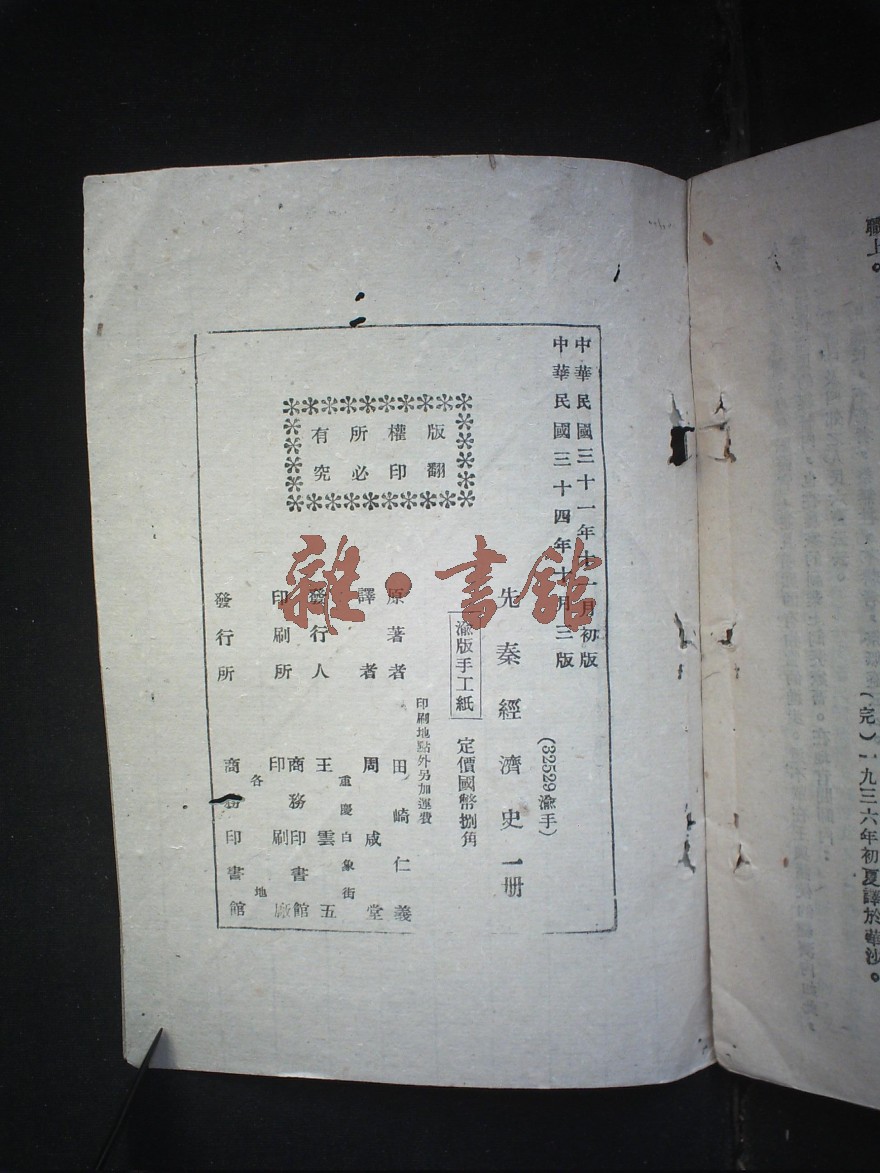 職上。
(完)一九三六年初夏譯於華沙。
中華民國三十一年十一月初版
中華民國三十四年十月三版
(32529渝手)
先秦經濟史一册
渝版手工紙
定價國幣捌角
印刷地點外另加運費
版權所有
翻印必究
原著者 田崎仁義
譯者 周咸堂
發行人 王雲五
重慶白象街
印刷所 商務印書館
印刷廠
發行所 各地
商務印書館
雜·書館